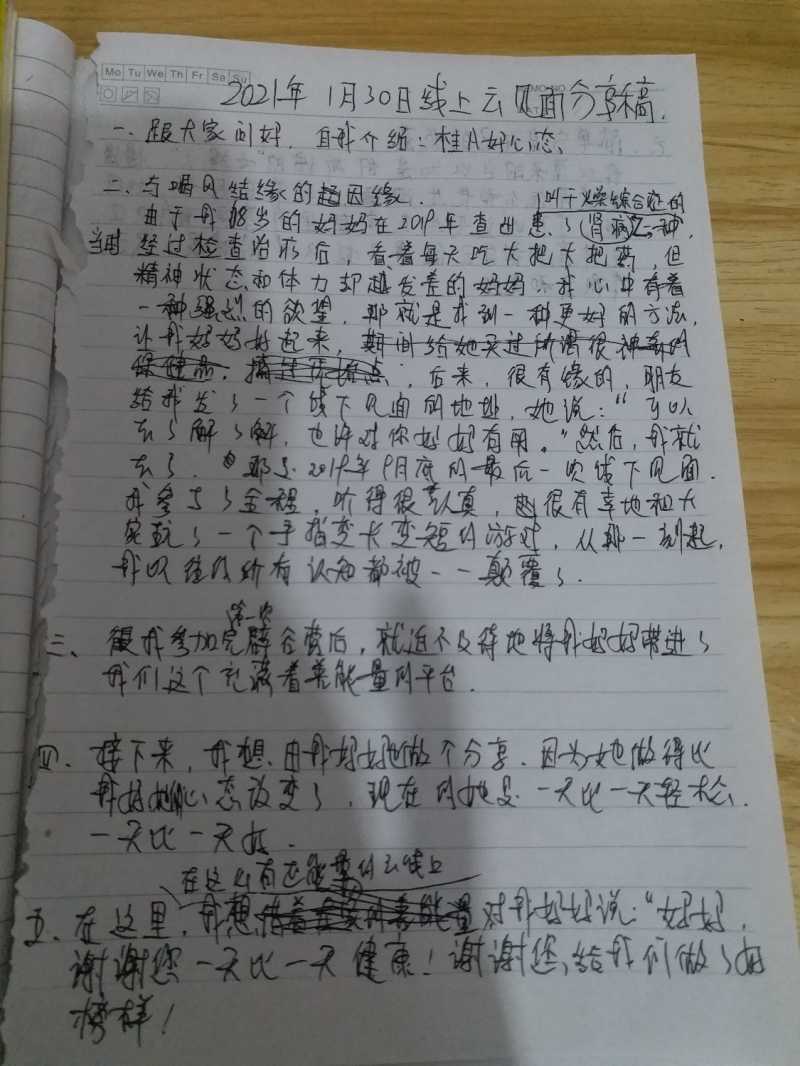 Mo Tu We Th Fr Sa Su
2021年1月30日线上云见面分享稿.
一、跟大家问好, 自我介绍:桂A好心态.
二、与喝风结缘的起因缘.
叫干燥综合征的
由于我68岁的妈妈在2019年查出患了(肾病之一种,
当时 经过检查治疗后, 看着每天吃大把大把药, 但
精神状态和体力却越发差的妈妈, 我心中有着
一种强烈的欲望, 那就是找到一种更好的方法,
让我妈妈好起来, 期间给她买过所谓很神奇的
保健品, , 后来, 很有缘的, 朋友
给我发了一个线下见面的地址, 她说:“可以
去了解了解, 也许对你妈妈有用。”然后, 我就
去了. 那是2019年9月底的最后一次线下见面.
我参与了全程, 听得很认真, 很有幸地和大
家玩了一个手指变长变短的游戏, 从那一刻起,
我以往的所有认知都被一一颠覆了.
第一次
三、 我参加完辟谷营后, 就迫不及待地将我妈妈带进了
我们这个充满着美能量的平台.
四、接下来, 我想由我妈妈她做个分享. 因为她做得比
我好她心态改变了, 现在的她是一天比一天轻松.
一天比一天好.
在这个有正能量的云线上
五、在这里, 我想借着 对我妈妈说:“妈妈,
谢谢您一天比一天健康! 谢谢您, 给我们做了好
榜样!